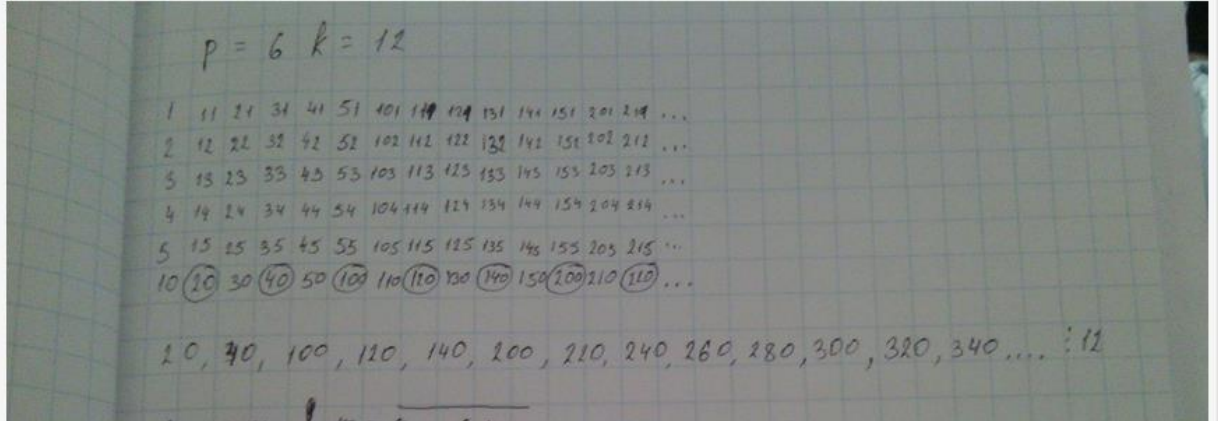 p = 6 k = 12
1 11 21 31 41 51 101 111 121 131 141 151 201 211 ...
2 12 22 32 42 52 102 112 122 132 142 152 202 212 ...
3 13 23 33 43 53 103 113 123 133 143 153 203 213 ...
4 14 24 34 44 54 104 114 124 134 144 154 204 214 ...
5 15 25 35 45 55 105 115 125 135 145 155 205 215 ...
10 20 30 40 50 100 110 120 130 140 150 200 210 220 ...
20, 40, 100, 120, 140, 200, 220, 240, 260, 280, 300, 320, 340.... ⋮ 12